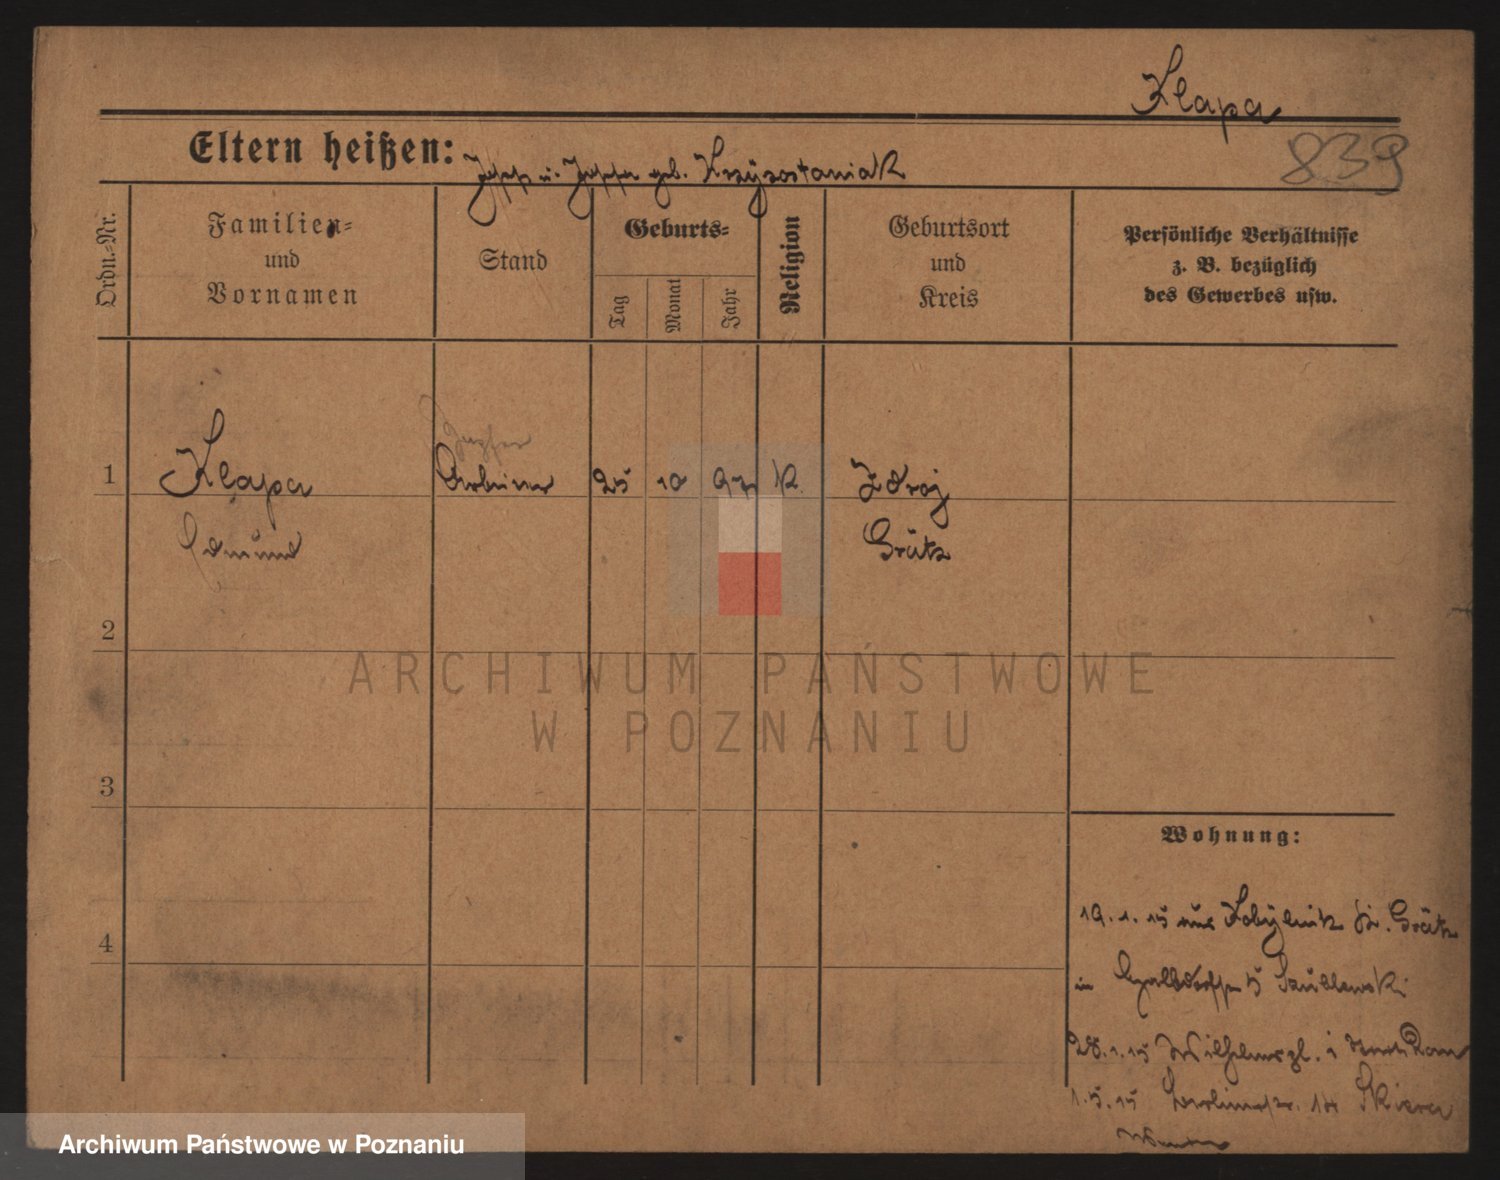 Klapa
839
Eltern heißen: Josef u. Josefa geb. Krzyżostaniak
Ordn.-Nr.
Familien-
und
Vornamen
Stand
Geburts-
Tag
Monat
Jahr
Religion
Geburtsort
und
Kreis
Persönliche Verhältnisse
z. B. bezüglich
des Gewerbes usw.
1
Klapa
Arbeiter
25 10 97 K.
Zdroj
Edmund
Grätz
2
ARCHIWUM PAŃSTWOWE
W POZNANIU
3
Wohnung:
19.1.15 aus Kobylnik Kr. Grätz
4
in 5
28.1.15 Wilhelmspl. 1
1.5.15 Berlinerstr. 14 Skiera
Archiwum Państwowe w Poznaniu